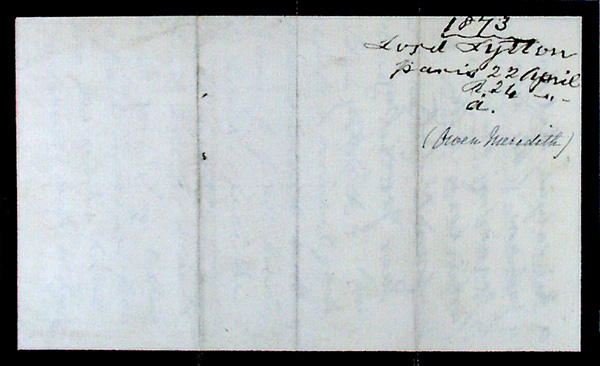 1873
Lord Lytton
Paris 22 April
R. 24 -"-
a.
(Owen Meredith)